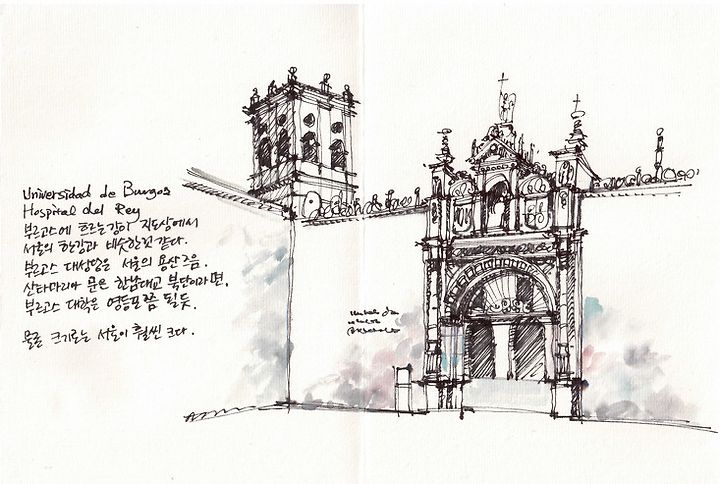 Universidad de Burgos
Hospital del Rey
부르고스에 흐르는강이 지도상에서
서울의 한강과 비슷한것 같다.
부르고스 대성당은 서울의 용산즈음.
산타마리아 문은 한남대교 북단이라면,
부르고스 대학은 영등포쯤 될듯.
물론 크기로는 서울이 훨씬 크다.